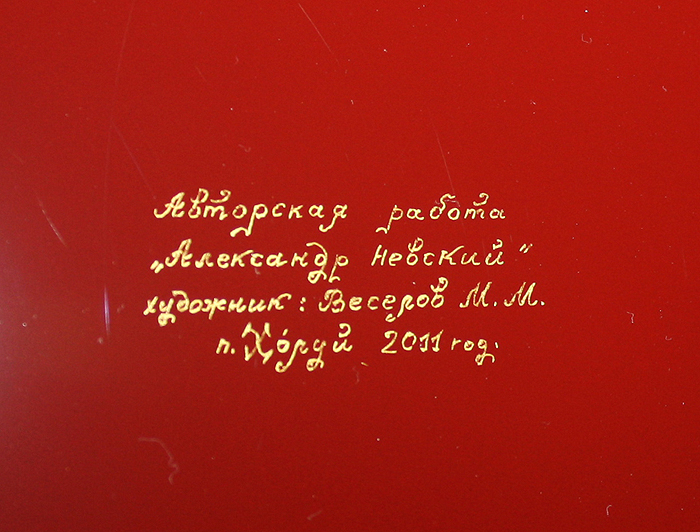 Авторская работа
„Александр Невский“
художник: Весёров М.М.
п. Хо́луй 2011 год.